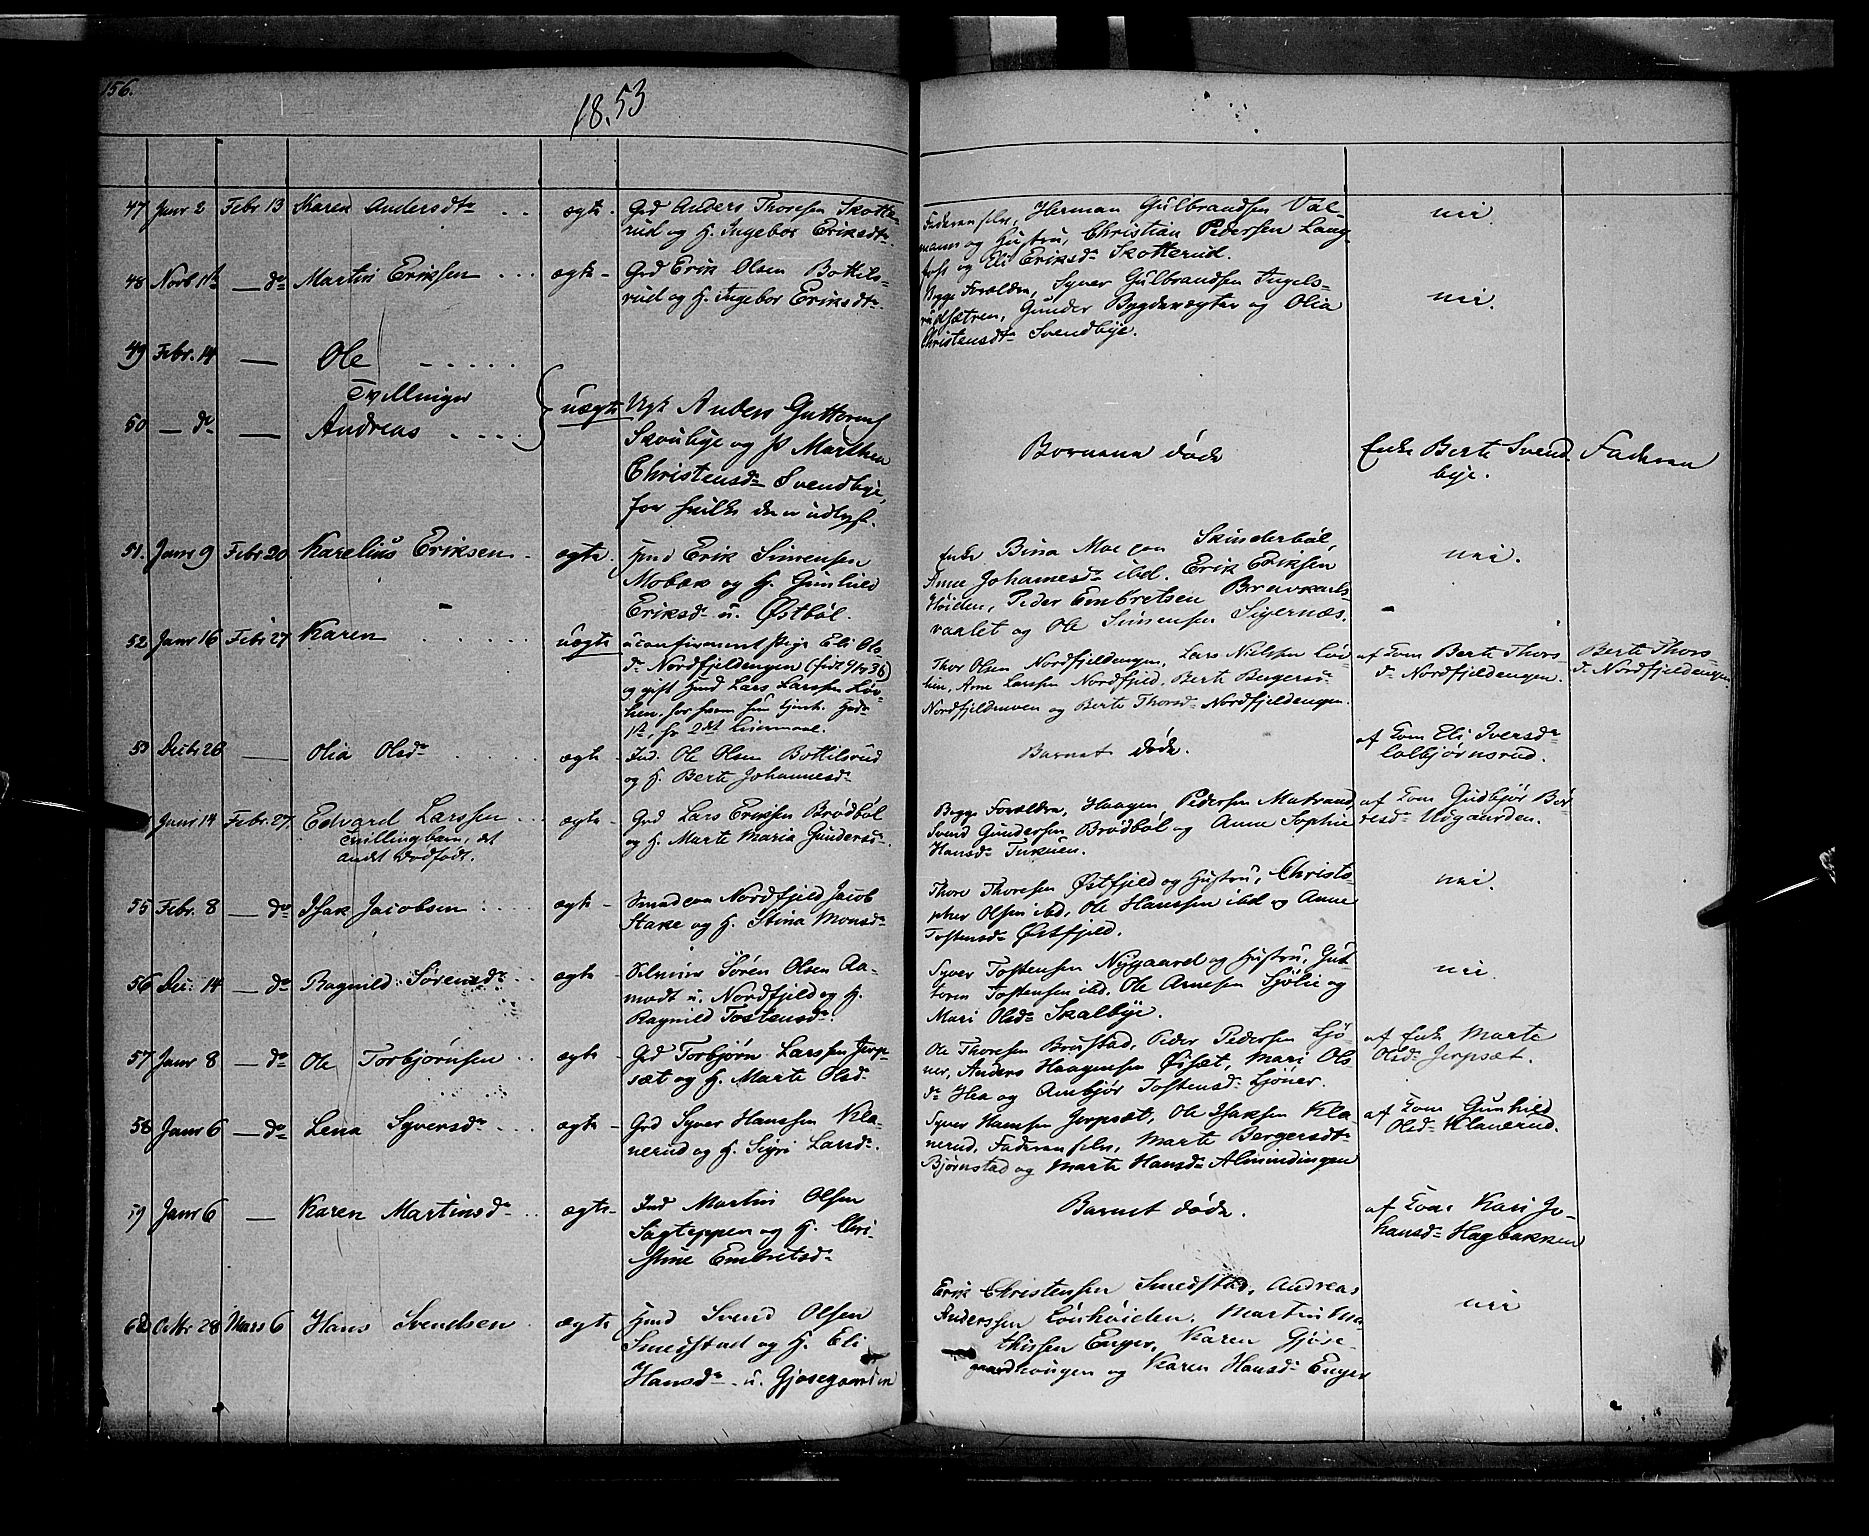 156.
18.53
47 Janr 2 Febr 13 Karen Andersdtr ægte Grd Anders Thoresen Skotte-
rud og H. Ingebor Eriksdtr
Faderen selv, Herman Gulbrandsen Val-
mann og Hustru, Christian Pedersen Lang-
fost og Eli Eriksdr Skotterud.
nei
48 Novb 11t — do Martin Eriksen ægte Grd Erik Olsen Bottils-
rud og H. Ingebor Eriksdtr
Begge Forældre, Syver Gulbrandsen Ingels-
rudsætren, Gunder Bygdevægter og Olia
Christensdtr Svendbye.
nei.
49 Febr. 14 — Ole
Tvillinger
50 — do — Andreas
uægte Ugk Anders Guttormsen
Skoubye og P Marthea
Christensdr Svendbye,
for hvilke de er udlyst.
Børnene døde
Enke Berte Svend-
bye.
Faderen
51. Janr 9 Febr 20 Karelius Eriksen ægte Hmd Erik Simensen
Mobæk og H. Gunhild
Eriksdr u. Østbøl.
Enke Bina Moe paa Skinderbøl,
Anne Johannesdr ibd. Erik Eriksen
Høiden, Peder Embretsen
vaalet og Ole Simensen Sigernæs.
nei.
52 Janr 16 Febr 27 Karen uægte uconfirmeret Pige Eli Ols-
dr Nordfjeldengen (fød 9/4 36)
og gift Hmd Lars Larssen Løv-
hen, for ham hun tjente. Hds
1st, hs 2det Leiermaal.
Thor Olsen Nordfjeldengen, Lars Nielsen Løv-
hen, Arne Larssen Nordfjeld, Berte Bergersdr
og Berte Thorsdr Nordfjeldengen.
af Jom Berte Thors-
dr Nordfjeldengen.
Berte Thors-
dr Nordfjeldengen
53 Decbr 26 — Olia Olsdr ægte Ind. Ole Olsen Bottilsrud
og H. Berte Johannesdr
Barnet døde.
af Jom Eli Iversdr
Colbjørnsrud.
Janr 14 Febr 27 Edvard Larssen
Tvillingbarn, det
andet dødfødt.
ægte Grd Lars Eriksen Brødbøl
og H. Marte Maria Gundersdr
Begge Forældre, Haagen Pedersen Matrand,
Svend Gundersen Brødbøl og Anne Sophie
Hansdr
af Jom Gudbjør Bør-
resdr Nygaarden.
55 Febr. 8 — do Isak Jacobsen ægte Smed paa Nordfjeld Jacob
Stake og H. Stina Monsdr
Thore Thoresen Østfjeld og Hustru, Christo-
pher Olsen ibd, Ole Hanssen ibd og Anne
Tostensdr Østfjeld.
nei.
56 Dec. 14 — do Ragnild Sørensdr ægte Selveier Søren Olsen Aa-
modt u. Nordfjeld og H.
Ragnild Tostensdr
Syver Tostensen Nygaard og Hustru, Gut-
torm Tostensen ibd. Ole Arnesen Sjølie og
Mari Olsdr Skalbye.
nei.
57 Janr 8 — do Ole Torbjørnsen ægte Grd Torbjørn Larssen Jerp-
sæt og H. Marte Olsdr
Ole Thoresen Brustad, Peder Pedersen Ljø-
ner, Anders Haagensen Øisæt, Mari Ols-
dr Hea og Ambjør Tostensdr Ljøner.
af Enke Marte
Olsdr Jerpsæt.
58 Janr 6 — do Lena Syversdr ægte Grd Syver Hanssen Kla-
nerud og H. Sigri Larsdr
Syver Hansen Jerpsæt, Ole Isaksen Kla-
nerud, Faderen selv, Marte Bergersdtr
Bjørnstad og Marte Hansdr Almindingen
af Jom Gunhild
Olsdr Klanerud.
59 Janr 6 — Karen Martinsdr ægte Ind Martin Olsen
Sagteppen og H. Chri-
stine Embretsdr
Barnet døde.
af Jom. Kari Jo-
hansdr Hagbakken
60 Octbr 28 Mars 6 Hans Svendsen ægte Hmd Svend Olsen
Smedstad og H. Eli
Hansdr u. Gjøsegaarden
Erik Christensen Smedstad, Andreas
Anderssen Løvhøiden, Martin Ma-
thissen Enger, Karen Gjøse-
gaardhougen og Karen Hansdr Enger
nei